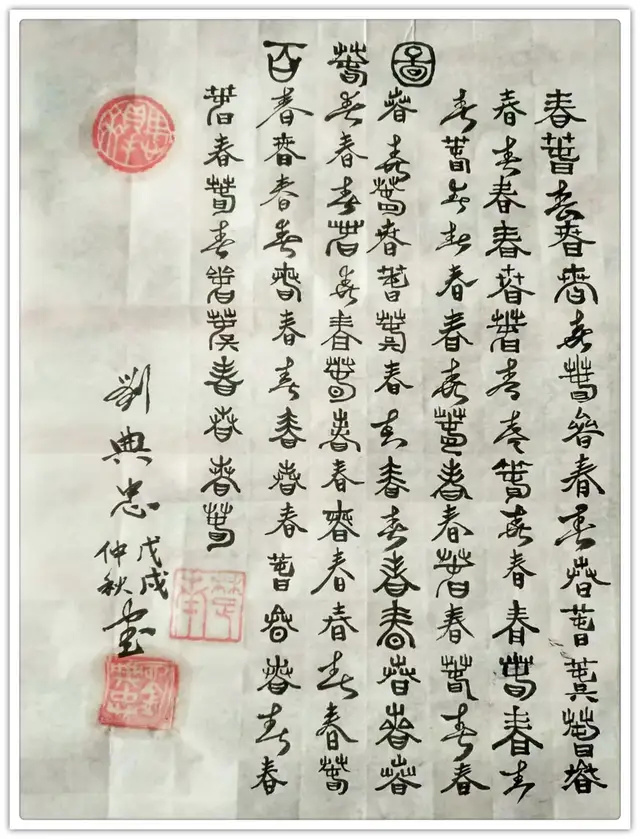 百萅圖
春春春春春春春春春春春春春春春
春春春春春春春春春春春春春春春
春春春春春春春春春春春春春春春
春春春春春春春春春春春春春春春
春春春春春春春春春春春春春春春
春春春春春春春春春春春春春春春
春春春春春春春春春春
劉典忠
戊戌
仲秋
書